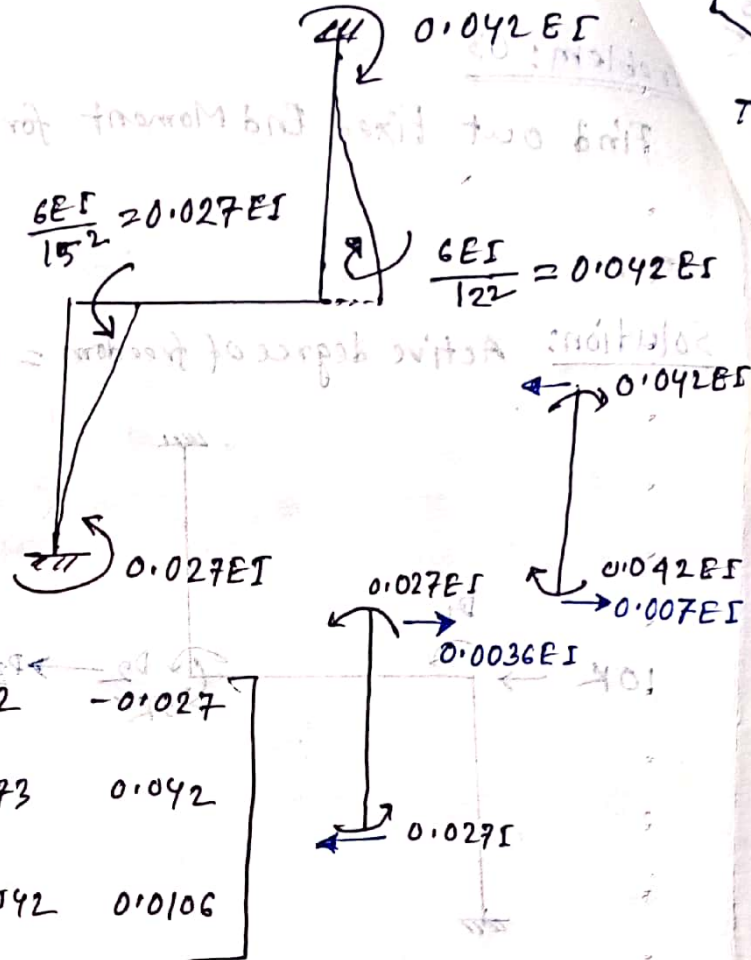 0.042EI
6EI/15² = 0.027EI
6EI/12² = 0.042EI
0.042EI
0.027EI
0.027EI
0.042EI
0.007EI
0.0036EI
2 -0.027
73 0.042
0.027I
42 0.0106